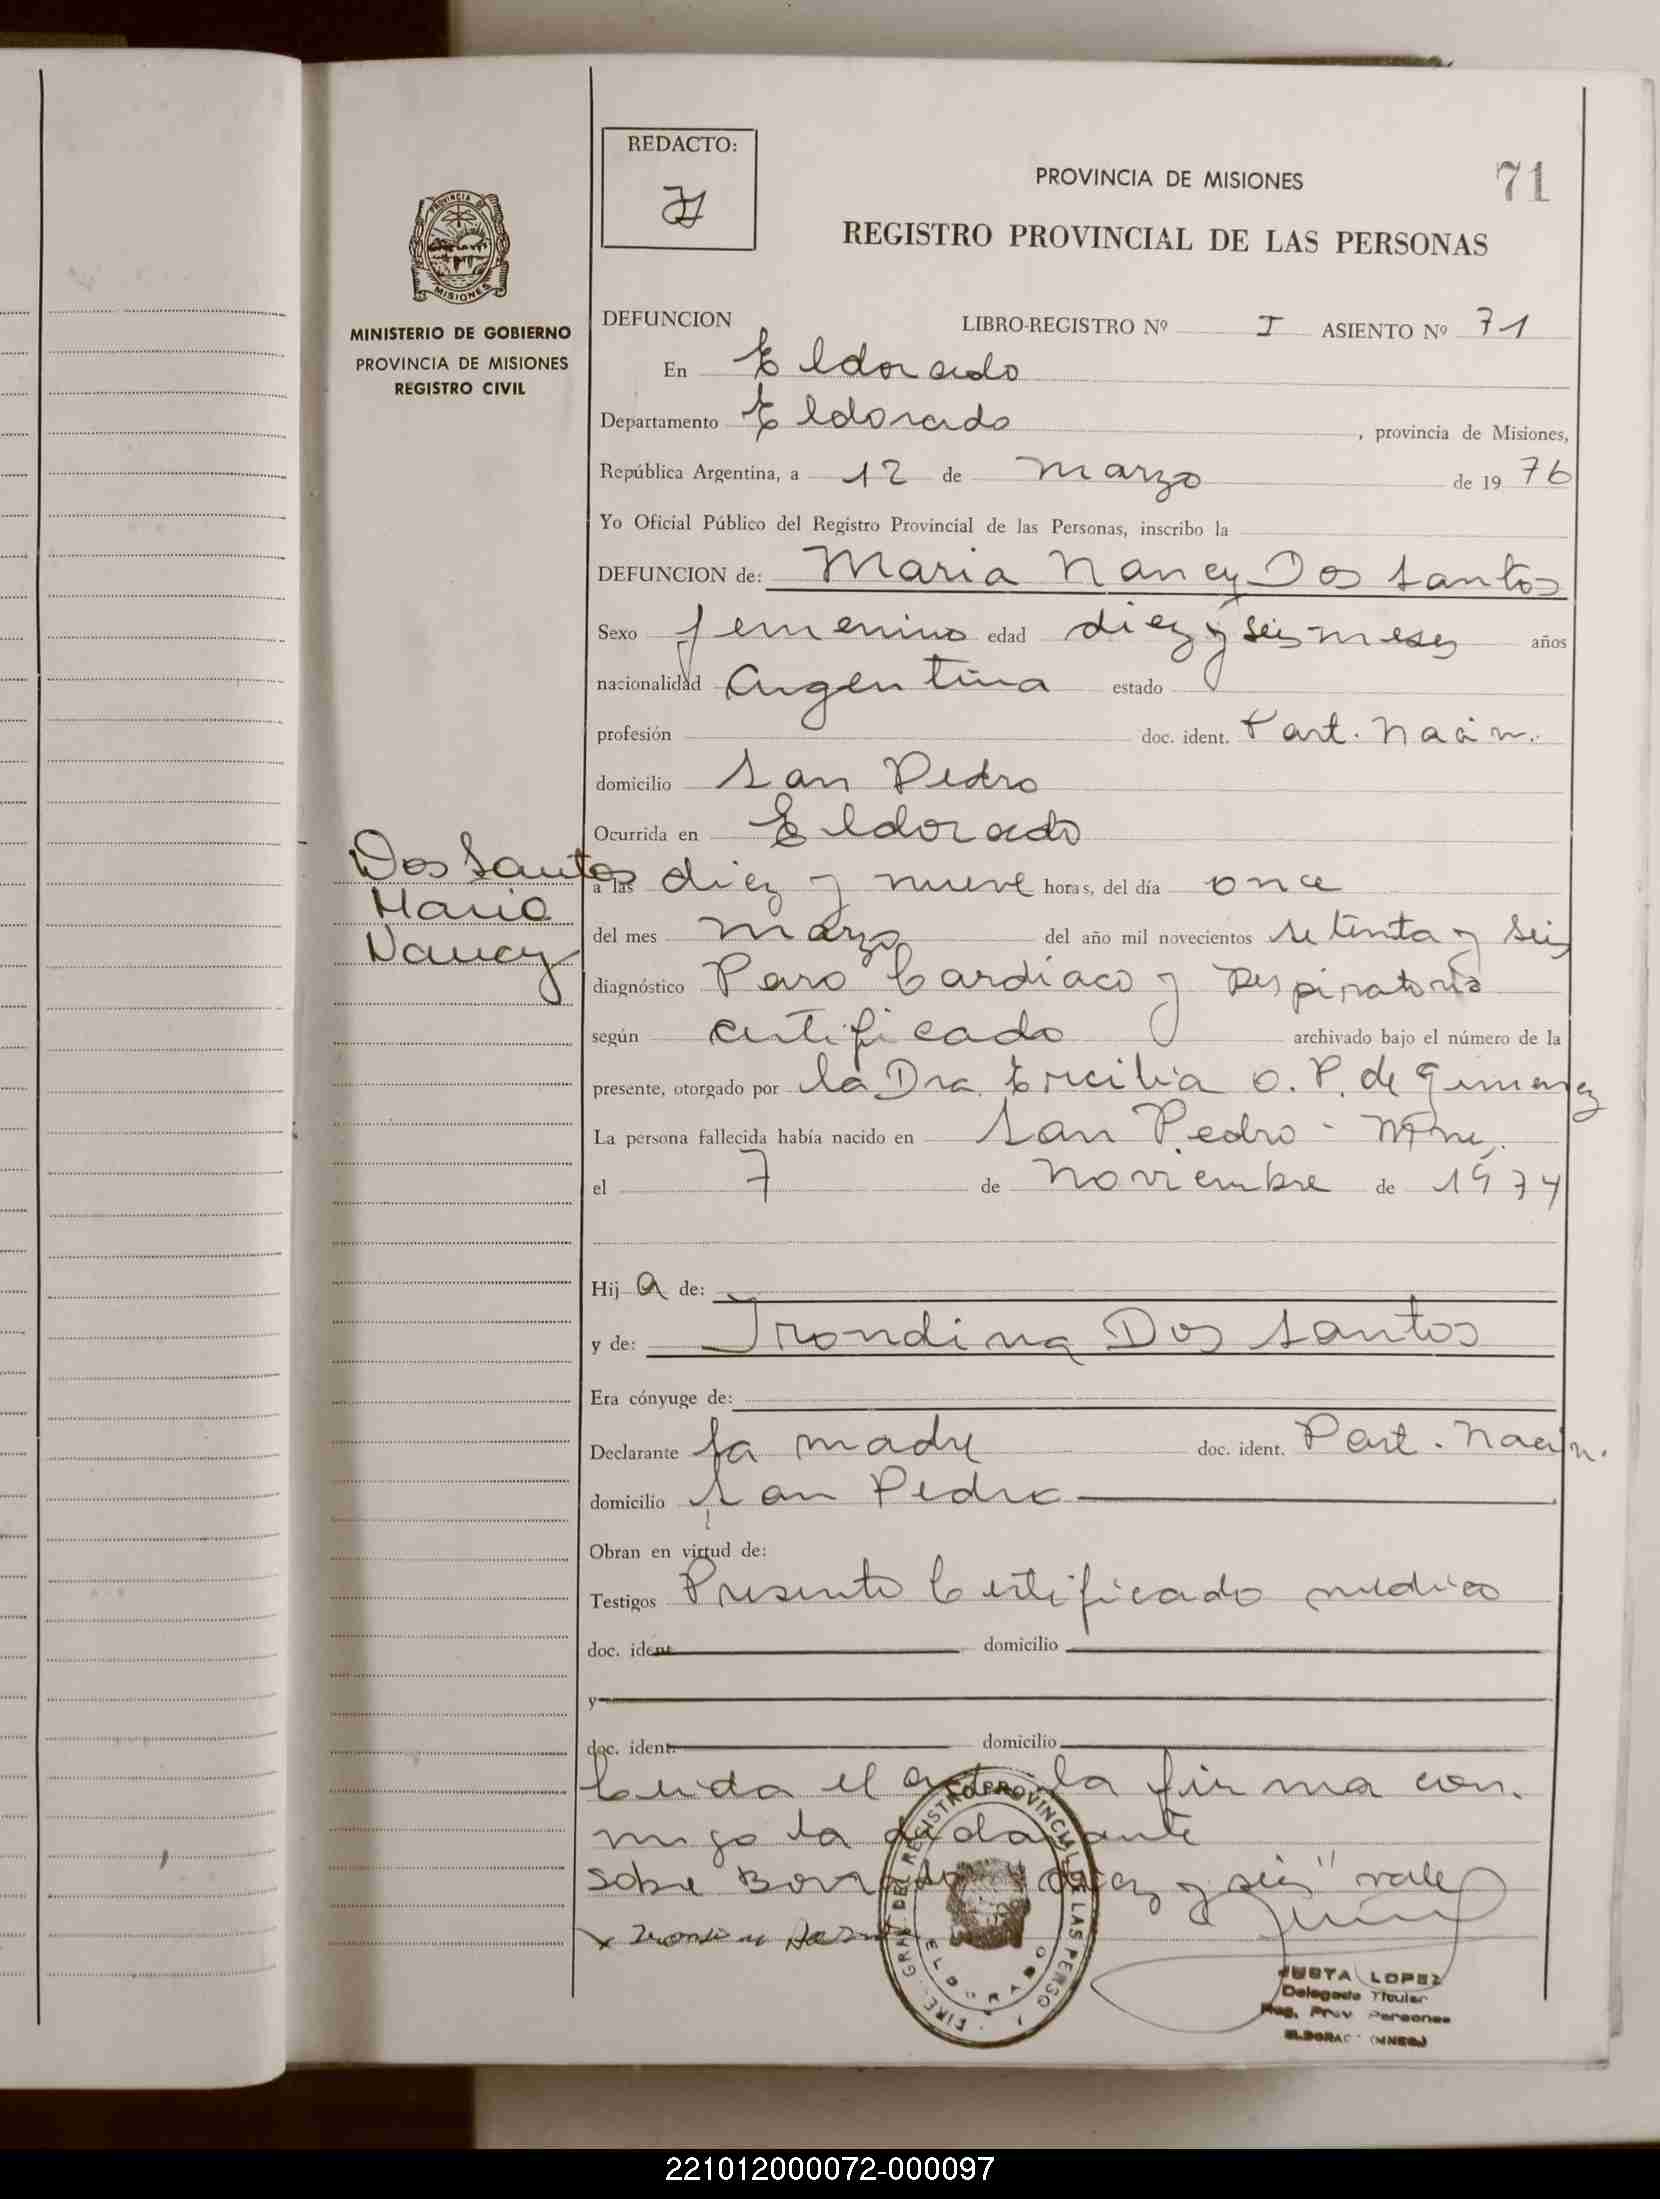 REDACTO:
PROVINCIA DE MISIONES
71
REGISTRO PROVINCIAL DE LAS PERSONAS
PROVINCIA DE
MISIONES
MINISTERIO DE GOBIERNO
PROVINCIA DE MISIONES
REGISTRO CIVIL
DEFUNCION LIBRO-REGISTRO Nº I ASIENTO Nº 71
En Eldorado
Departamento Eldorado, provincia de Misiones,
República Argentina, a 12 de marzo de 1976
Yo Oficial Público del Registro Provincial de las Personas, inscribo la
DEFUNCION de: Maria Nancy Dos Santos
Sexo femenino edad diez y seis meses años
nacionalidad Argentina estado
profesión doc. ident. Part. Nacim.
domicilio San Pedro
Ocurrida en Eldorado
Dos Santos
Maria
Nancy
a las diez y nueve horas, del día once
del mes marzo del año mil novecientos setenta y seis
diagnóstico Paro Cardíaco y Respiratorio
según certificado archivado bajo el número de la
presente, otorgado por la Dra. Ercilia O. P. de Gimenez
La persona fallecida había nacido en San Pedro - Mnes.
el 7 de Noviembre de 1974
Hija de:
y de: Irondina Dos Santos
Era cónyuge de:
Declarante La madre doc. ident. Part. Nacim.
domicilio San Pedro
Obran en virtud de:
Testigos Presento Certificado medico
doc. ident. domicilio
y
doc. ident. domicilio
Leida el acta la firma con.
migo la declarante
Sobre Borrado "diez y seis" vale
REGISTRO PROVINCIAL DE LAS PERSO
ELDORADO
JUSTA LOPEZ
Delegada Titular
Reg. Prov Personas
ELDORADO (MNES)
221012000072-000097